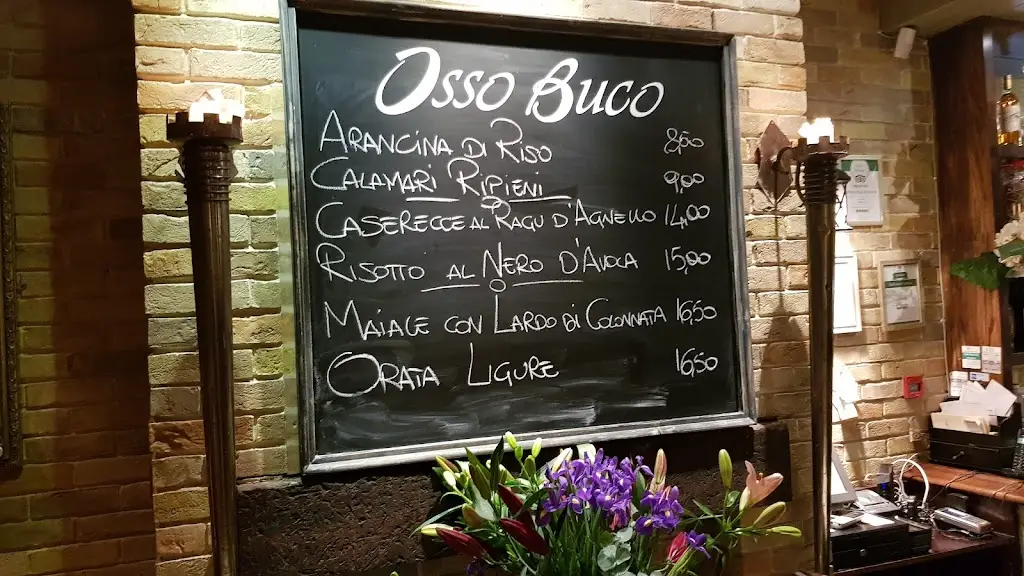 Osso Buco
ARANCINA DI RISO 8,50
CALAMARI RIPIENI 9,00
CASERECCE AL RAGU D'AGNELLO 14,00
RISOTTO AL NERO D'AVOLA 15,00
MAIALE CON LARDO DI COLONNATA 16,50
ORATA LIGURE 16,50